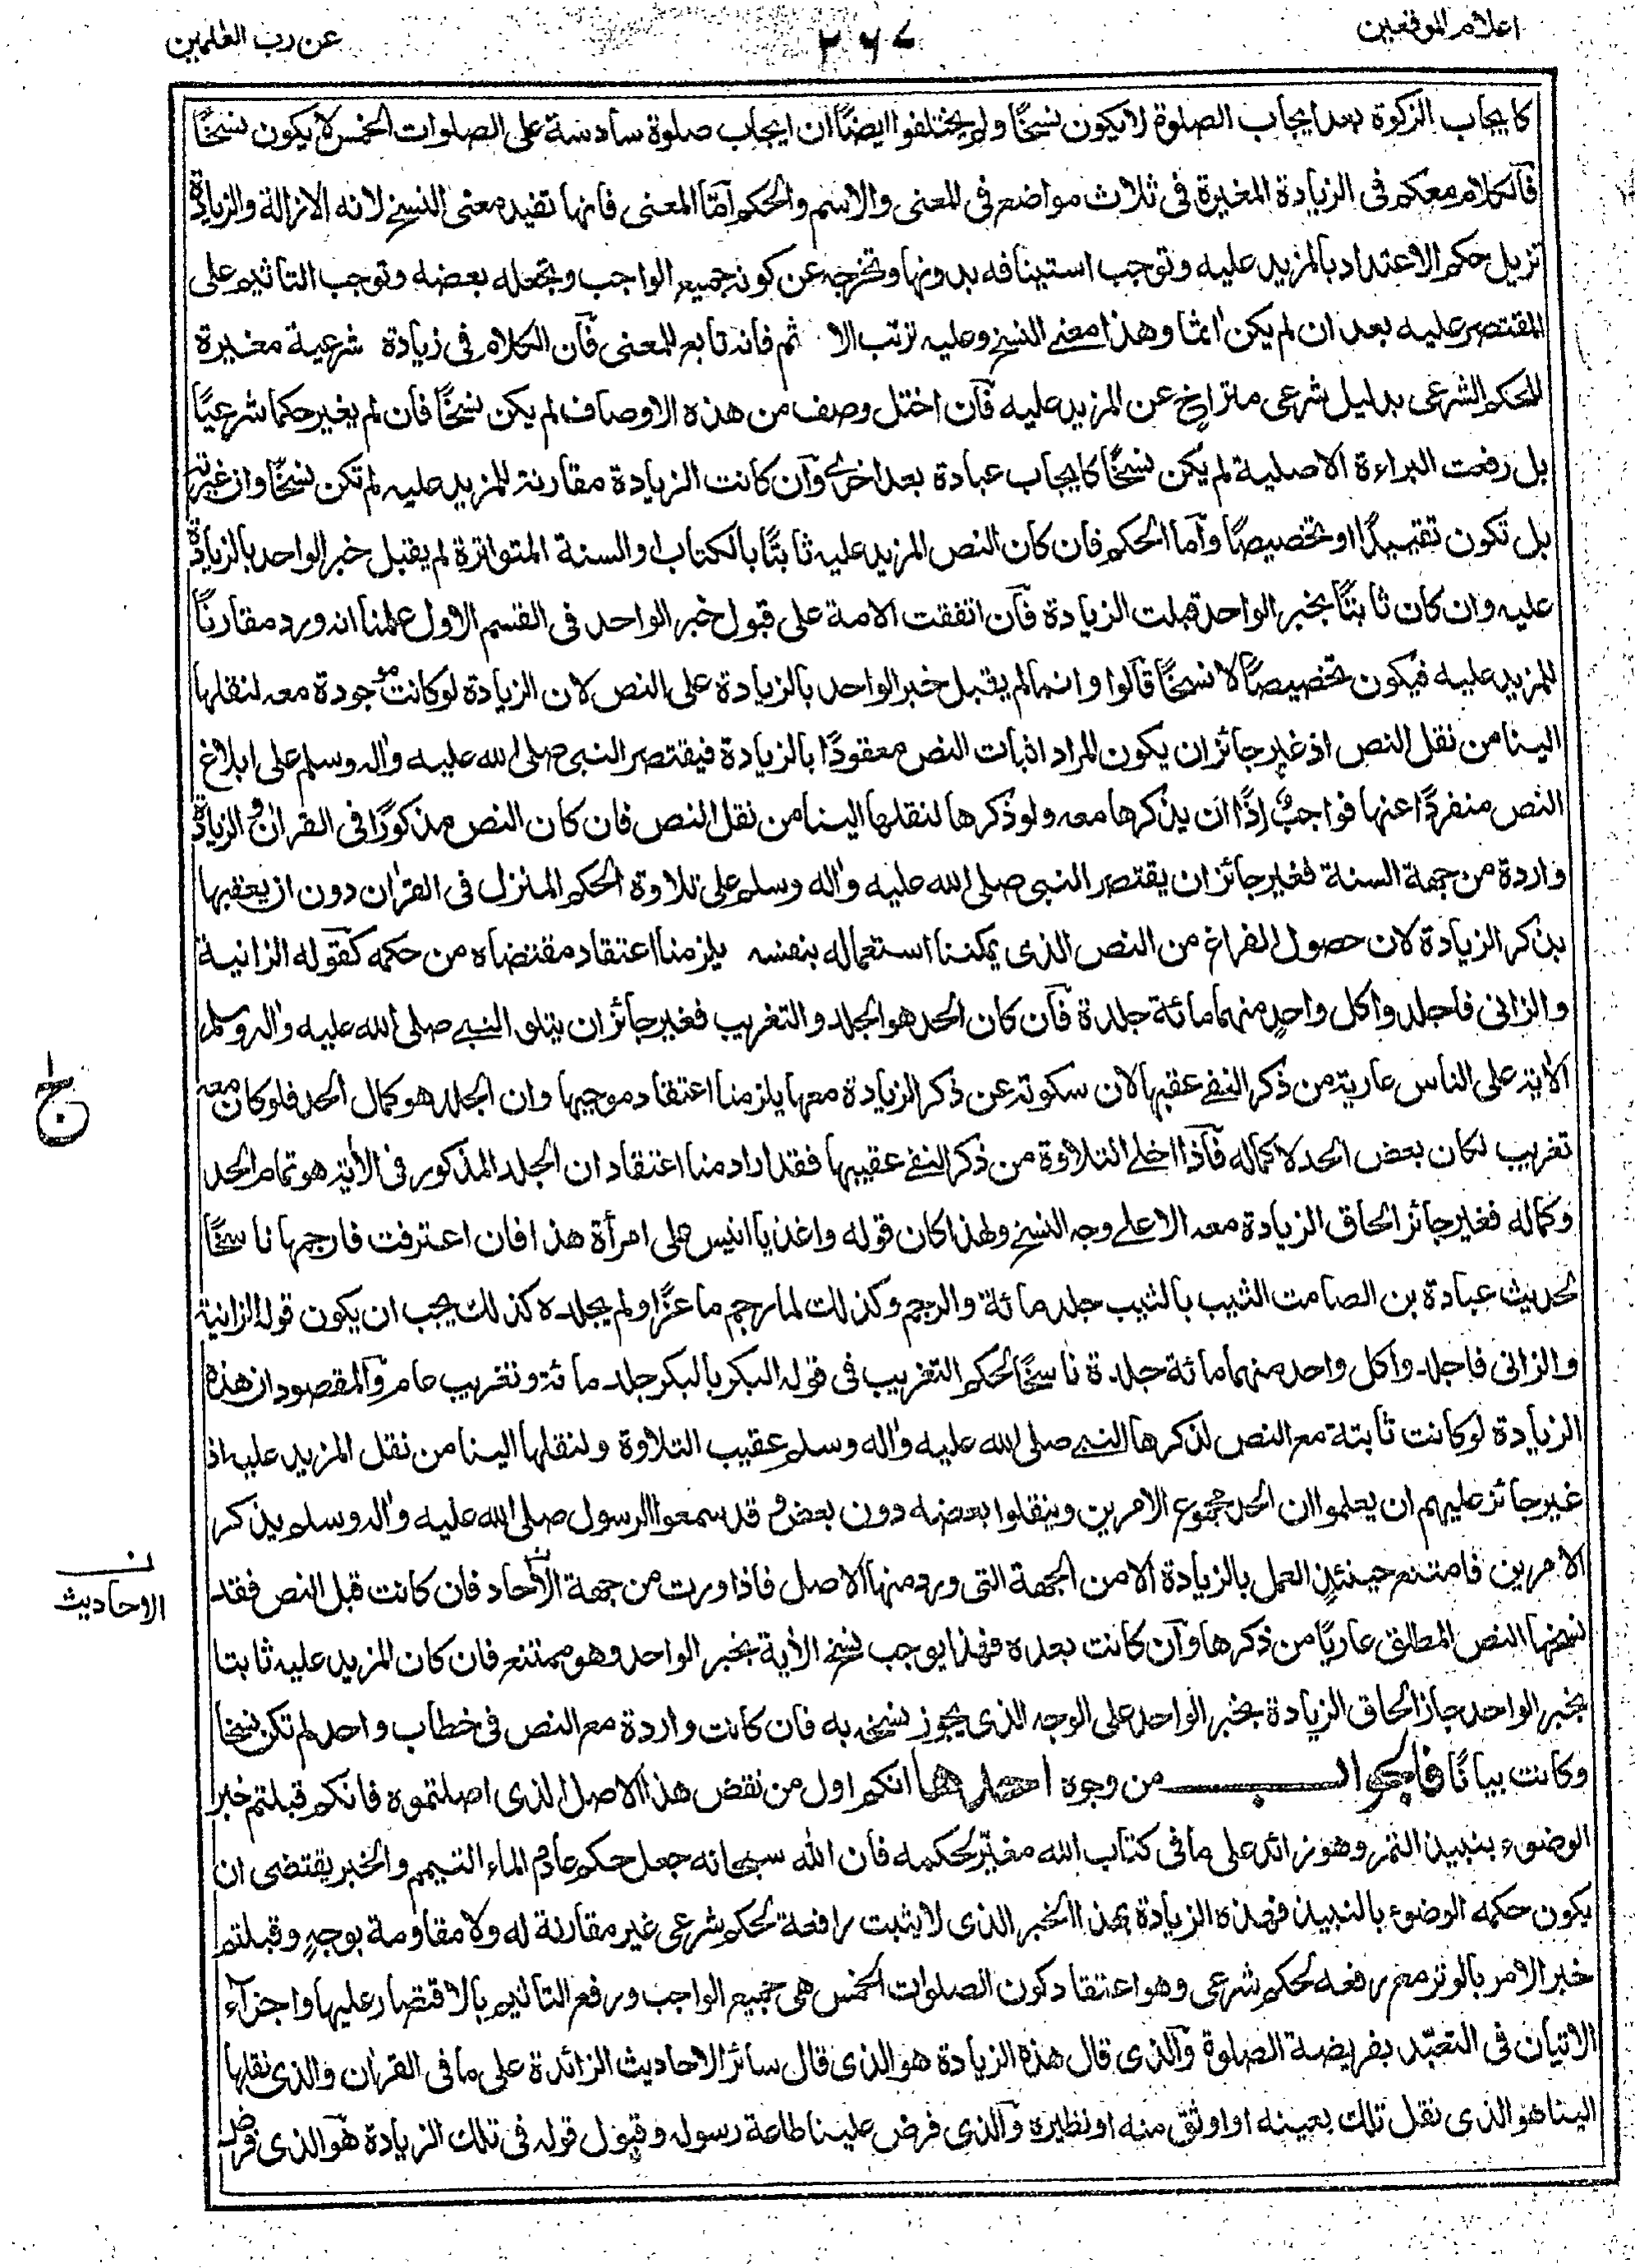 اعلام الموقعين
٢٦٧
عن رب العلمين
كايجاب الزكوة بعد ايجاب الصلوة لا يكون نسخًا ولم يختلفوا ايضًا ان ايجاب صلوة سادسة على الصلوات الخمس لا يكون نسخًا
فالكلام معكم فى الزيادة المغيرة فى ثلاث مواضع فى المعنى والاسم والحكم امّا المعنى فانها تفيد معنى النسخ لانه الازالة والزيادة
تزيل حكم الاعتداد بالمزيد عليه وتوجب استينافه بدونها وتخرجه عن كونه جميع الواجب وتجعله بعضه وتوجب التاثيم على
المقتصر عليه بعد ان لم يكن اثما وهذا معنى النسخ وعليه ترتب الاثم فانه تابع للمعنى فآن الكلام فى زيادة شرعية مغيرة
للحكم الشرعى بدليل شرعى متراخ عن المزيد عليه فآن اختل وصف من هذه الاوصاف لم يكن نسخًا فان لم يغير حكما شرعيًا
بل رفعت البراءة الاصلية لم يكن نسخًا كايجاب عبادة بعد اخرى وآن كانت الزيادة مقارنة للمزيد عليه لم تكن نسخًا وان غيرته
بل تكون تقييدًا او تخصيصًا وآما الحكم فان كان النص المزيد عليه ثابتًا بالكتاب او السنة المتواترة لم يقبل خبر الواحد بالزيادة
عليه وان كان ثابتًا بخبر الواحد قبلت الزيادة فآن اتفقت الامة على قبول خبر الواحد فى القسم الاول علمنا انه ورد مقارنًا
للمزيد عليه فيكون تخصيصًا لا نسخًا قآلوا وانما لم يقبل خبر الواحد بالزيادة على النص لان الزيادة لو كانت موجودة معه لنقلها
الينا من نقل النص اذ غير جائز ان يكون المراد اثبات النص معقودًا بالزيادة فيقتصر النبى صلى الله عليه واٰله وسلم على ابلاغ
النص منفردًا عنها فواجبٌ إذًا ان يذكرها معه ولو ذكرها لنقلها الينا من نقل النص فان كان النص مذكورًا فى القراٰن والزيادة
واردة من جهة السنة فغير جائز ان يقتصر النبى صلى الله عليه واٰله وسلم على تلاوة الحكم المنزل فى القراٰن دون ان يعقبها
بذكر الزيادة لان حصول الفراغ من النص الذى يمكننا استعماله بنفسه يلزمنا اعتقاد مقتضاه من حكمه كقوله الزانية
والزانى فاجلدوا كل واحدٍ منهما مائة جلدة فآن كان الحد هو الجلد والتغريب فغير جائز ان يتلو النبى صلى الله عليه واٰله وسلم
الاٰية على الناس عارية من ذكر النفى عقبها لان سكوته عن ذكر الزيادة معها يلزمنا اعتقاد موجبها وان الجلد هو كمال الحد فلو كان معه
تغريب لكان بعض الحد لا كماله فآذا اخلى التلاوة من ذكر النفى عقيبها فقد اراد منا اعتقاد ان الجلد المذكور فى الاٰية هو تمام الحد
وكماله فغير جائز الحاق الزيادة معه الا على وجه النسخ ولهذا كان قوله واغد يا انيس على امرأة هذا فان اعترفت فارجمها ناسخًا
لحديث عبادة بن الصامت الثيب بالثيب جلد مائة والرجم وكذلك لما رجم ماعزًا ولم يجلده كذلك يجب ان يكون قوله الزانية
والزانى فاجلدوا كل واحد منهما مائة جلدة ناسخًا لحكم التغريب فى قوله البكر بالبكر جلد مائة وتغريب عام وآلمقصود ان هذه
الزيادة لو كانت ثابتة مع النص لذكرها النبى صلى الله عليه واٰله وسلم عقيب التلاوة ولنقلها الينا من نقل المزيد عليه اذ
غير جائز عليهم ان يعلموا ان الحد مجموع الامرين وينقلوا بعضه دون بعض وقد سمعوا الرسول صلى الله عليه واٰله وسلم يذكر
الامرين فامتنع حينئذٍ العمل بالزيادة الا من الجهة التى ورد منها الاصل فاذا وردت من جهة الاٰحاد فان كانت قبل النص فقد
ن
الاحاديث
نسخها النص المطلق عاريًا من ذكرها وآن كانت بعده فهذا يوجب نسخ الاٰية بخبر الواحد وهو ممتنع فان كان المزيد عليه ثابتا
بخبر الواحد جاز الحاق الزيادة بخبر الواحد على الوجه الذى يجوز نسخه به فان كانت واردة مع النص فى خطاب واحد لم تكن نسخا
وكانت بيانًا فالجواب من وجوه احدها انكم اول من نقض هذا الاصل الذى اصلتموه فانكم قبلتم خبر
الوضوء بنبيذ التمر وهو زائد على ما فى كتاب الله مغيّر لحكمه فآن الله سبحانه جعل حكم عادم الماء التيمم والخبر يقتضى ان
يكون حكمه الوضوء بالنبيذ فهذه الزيادة بهذا الخبر الذى لا يثبت رافعة لحكم شرعى غير مقارنة له ولا مقاومة بوجهٍ وقبلتم
خبر الامر بالوتر مع رفعه لحكم شرعى وهو اعتقاد كون الصلوات الخمس هى جميع الواجب ورفع التاثيم بالاقتصار عليها واجزآء
الاتيان فى التعبّد بفريضة الصلوة وآلذى قال هذه الزيادة هو الذى قال سائر الاحاديث الزائدة على ما فى القراٰن والذى نقلها
الينا هو الذى نقل تلك بعينه او اوثق منه او نظيره وآلذى فرض علينا طاعة رسوله وقبول قوله فى تلك الزيادة هو الذى فرض